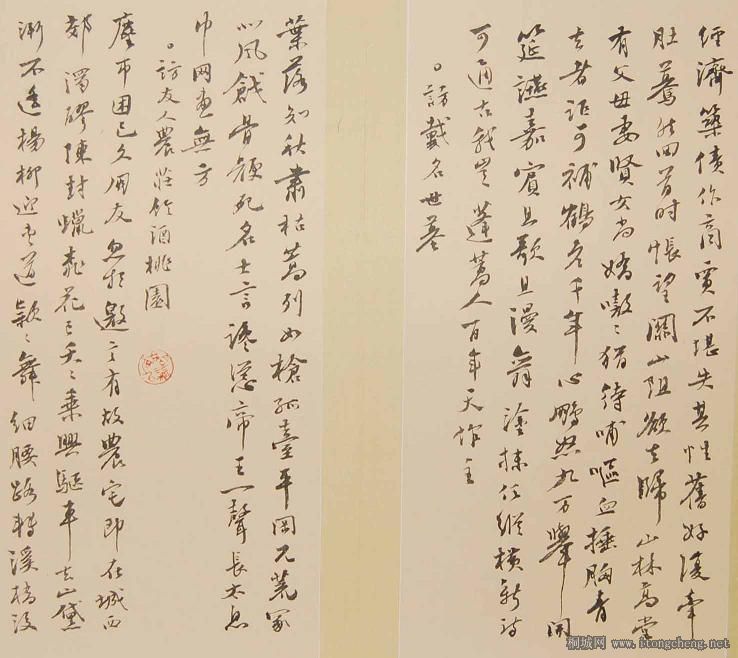 經濟築債作商賈不堪失其性舊好復牽
肚驀然回首時悵望關山阻欲去歸山林高堂
有父母妻賢女尚嬌嗷嗷猶待哺嘔血捶胸者
去者詎可補鶴名千年心鵬怒九万舉開
筵讌嘉賓且歌且漫舞塗抹任縱橫新詩
可通古我豈蓬蒿人百年天作主
訪戴名世墓
葉落知秋肅枯蒿列如槍孤臺平岡兀荒冢
北風戧骨硬死名士言誅惡帝王一聲長太息
巾网血無方
訪友人農莊飲酒桃園
塵市困已久同友忽相邀言有故農宅即在城西
郊濁醪陳封蠟桃花已夭夭乘興驅車去山黛
漸不遙楊柳迎長道款款舞細腰路轉溪橋沒
桐城网 www.itongcheng.net